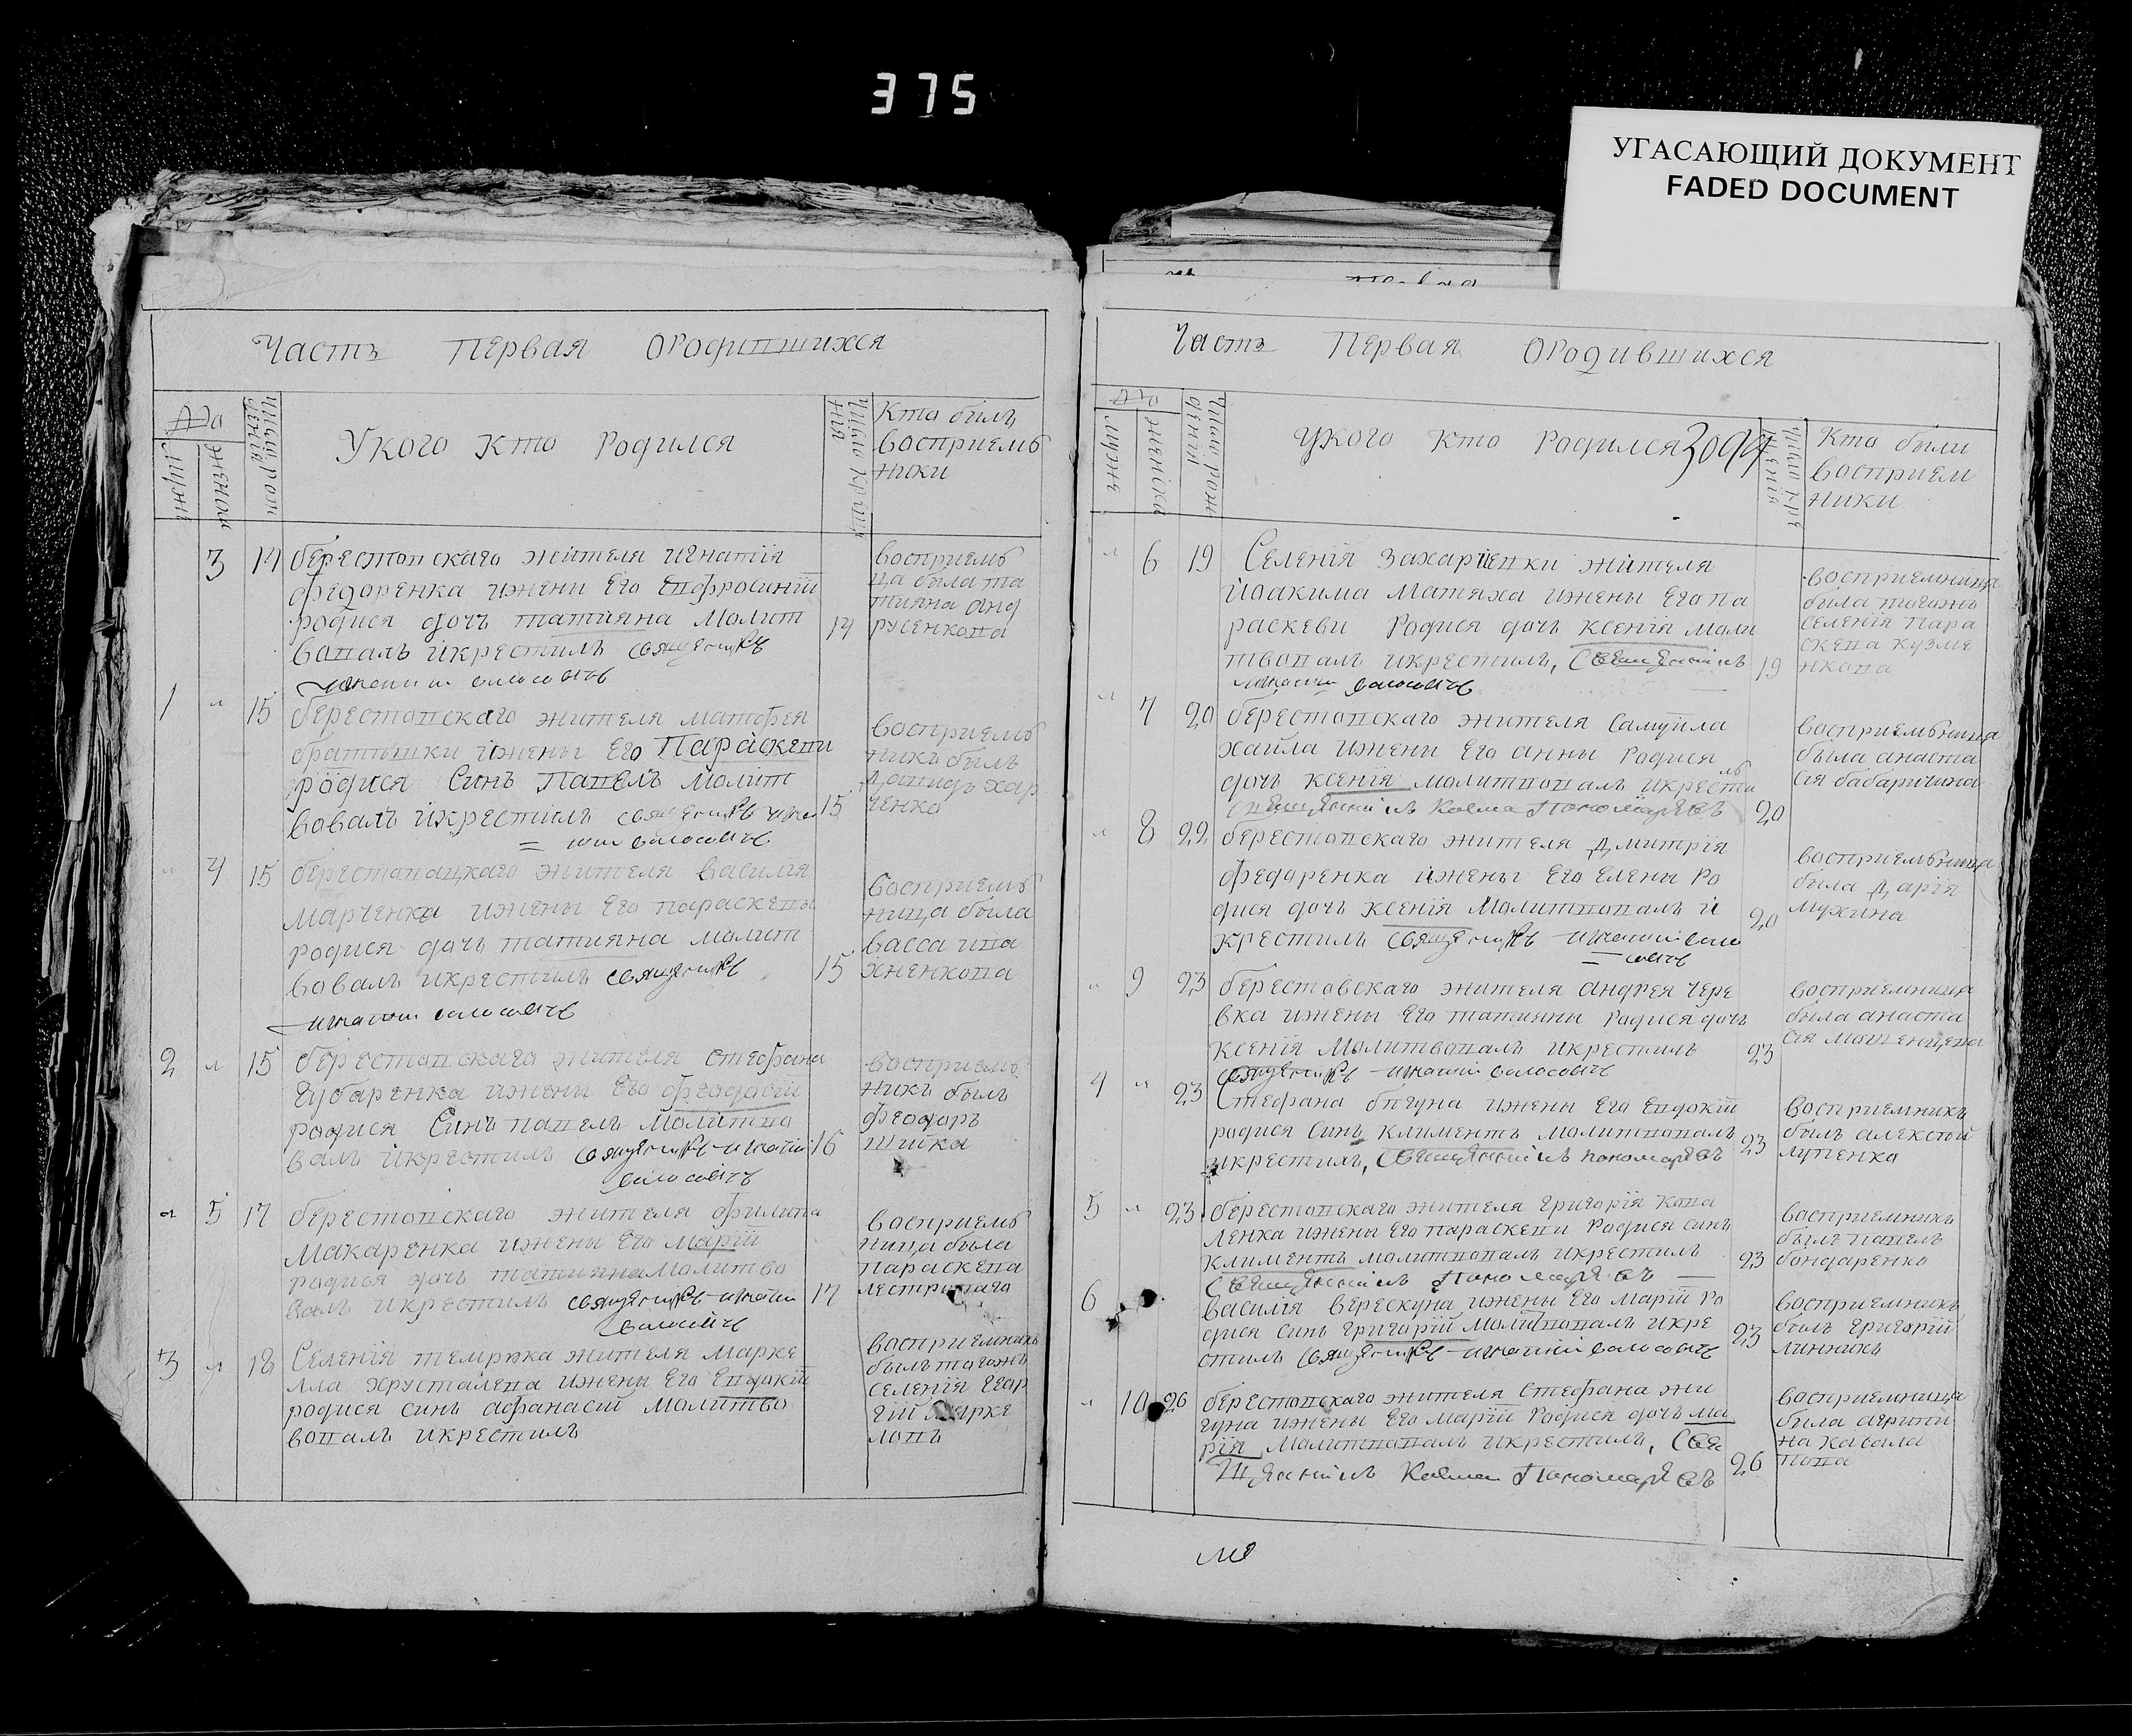 375
УГАСАЮЩИЙ ДОКУМЕНТ
FADED DOCUMENT
Часть Первая ородившихся
До
мужес
женска
число рож
денія
У кого Кто Родился
Число кре
нія
Кто билъ
восприемъ
ники
3 14 берестовскаго жителя игнатія
федоренка ижени Его Евфросиніи
родися дочъ татияна молит
вовалъ икрестилъ священикъ
игнатий волосовичъ
14
восприемъ
ца била та
тияна анд
русенкова
1 " 15 берестовскаго жителя матфея
братышки ижены Его Параскеви
родися Синъ Павелъ молит
вовалъ икрестилъ священикъ игна
= тий волосовичъ
15
восприемъ
никъ билъ
давидъ хар
ченко
" 4 15 берестовацкаго жителя василія
марченка ижены Его параскевы
родися дочъ татияна молит
вовалъ икрестилъ священикъ
игнатий волосовичъ
15
восприемъ
ница была
васса ива
хненкова
2 " 15 берестовскаго жителя стефана
губаренка ижени Его феодосіи
родися Синъ павелъ молитво
валъ икрестилъ священикъ игнатий
волосовичъ
16
восприемъ
никъ былъ
феодоръ
шпика
" 5 17 берестовскаго жителя филипа
макаренка ижени Его маріи
родися дочъ татияна молитво
валъ икрестилъ священикъ игнатий
волосовичъ
17
восприемъ
ница была
параскева
3 " 18 Селенія темрюка жителя марке
лла хрусталева ижени Его Евдокіи
родися синъ афанасій молитво
вовалъ икрестилъ
восприемникъ
былъ тогожъ
селенія геор
гій марке
ловъ
Часть Первая ородившихся
До
мужес
женска
число рож
деній
у кого кто родился
309
число кре
щенія
Кто были
восприем
ники
" 6 19 Селенія захарievки жителя
Иоакима матяха ижены Его па
раскеви родися дочъ ксенія моли
твовалъ икрестилъ, Священникъ
игнатий волосовичъ
19
восприемница
была тогожъ
селенія пара
скева кузме
нкова
" 7 20 берестовскаго жителя самуила
хаила ижени Его анны родися
дочъ ксенія молитвовалъ икрести
лъ
священникъ Косма Пономаревъ
20
восприемъница
была анаста
сія бабаричина
" 8 22 берестовскаго жителя дмитрія
федоренка ижены Его Елены ро
дися дочъ ксенія молитвовалъ и
крестилъ священикъ игнатий воло
= совичъ
20
восприемъница
была дарія
мухина
" 9 23 берестовскаго жителя андрея чере
вка ижени Его татияни родися дочъ
ксенія молитвовалъ икрестилъ
священикъ игнатий волосовичъ
23
восприемница
была анаста
сія
4 " 23 Стефана бигуна ижены Его Евдокіи
родися синъ климентъ молитвовалъ
икрестилъ, Священникъ пономаревъ
23
восприемникъ
былъ алексѣй
лупенко
5 " 23 берестовскаго жителя григорія кова
ленка ижены Его параскеви родися синъ
климентъ молитвовалъ икрестилъ
Священникъ Пономаревъ
23
восприемникъ
былъ павелъ
бондаренко
6 василія верескуна ижены Его маріи ро
дися синъ григорій молитвовалъ икре
стилъ священикъ игнатий волосовичъ
23
восприемникъ
былъ григорій
линникъ
" 10 26 берестовскаго жителя стефана жи
гуна ижены Его маріи родися дочъ ма
рія молитвовалъ икрестилъ, Свя
щенникъ Косма Пономаревъ
26
восприемница
была агрипи
на ковале
вова